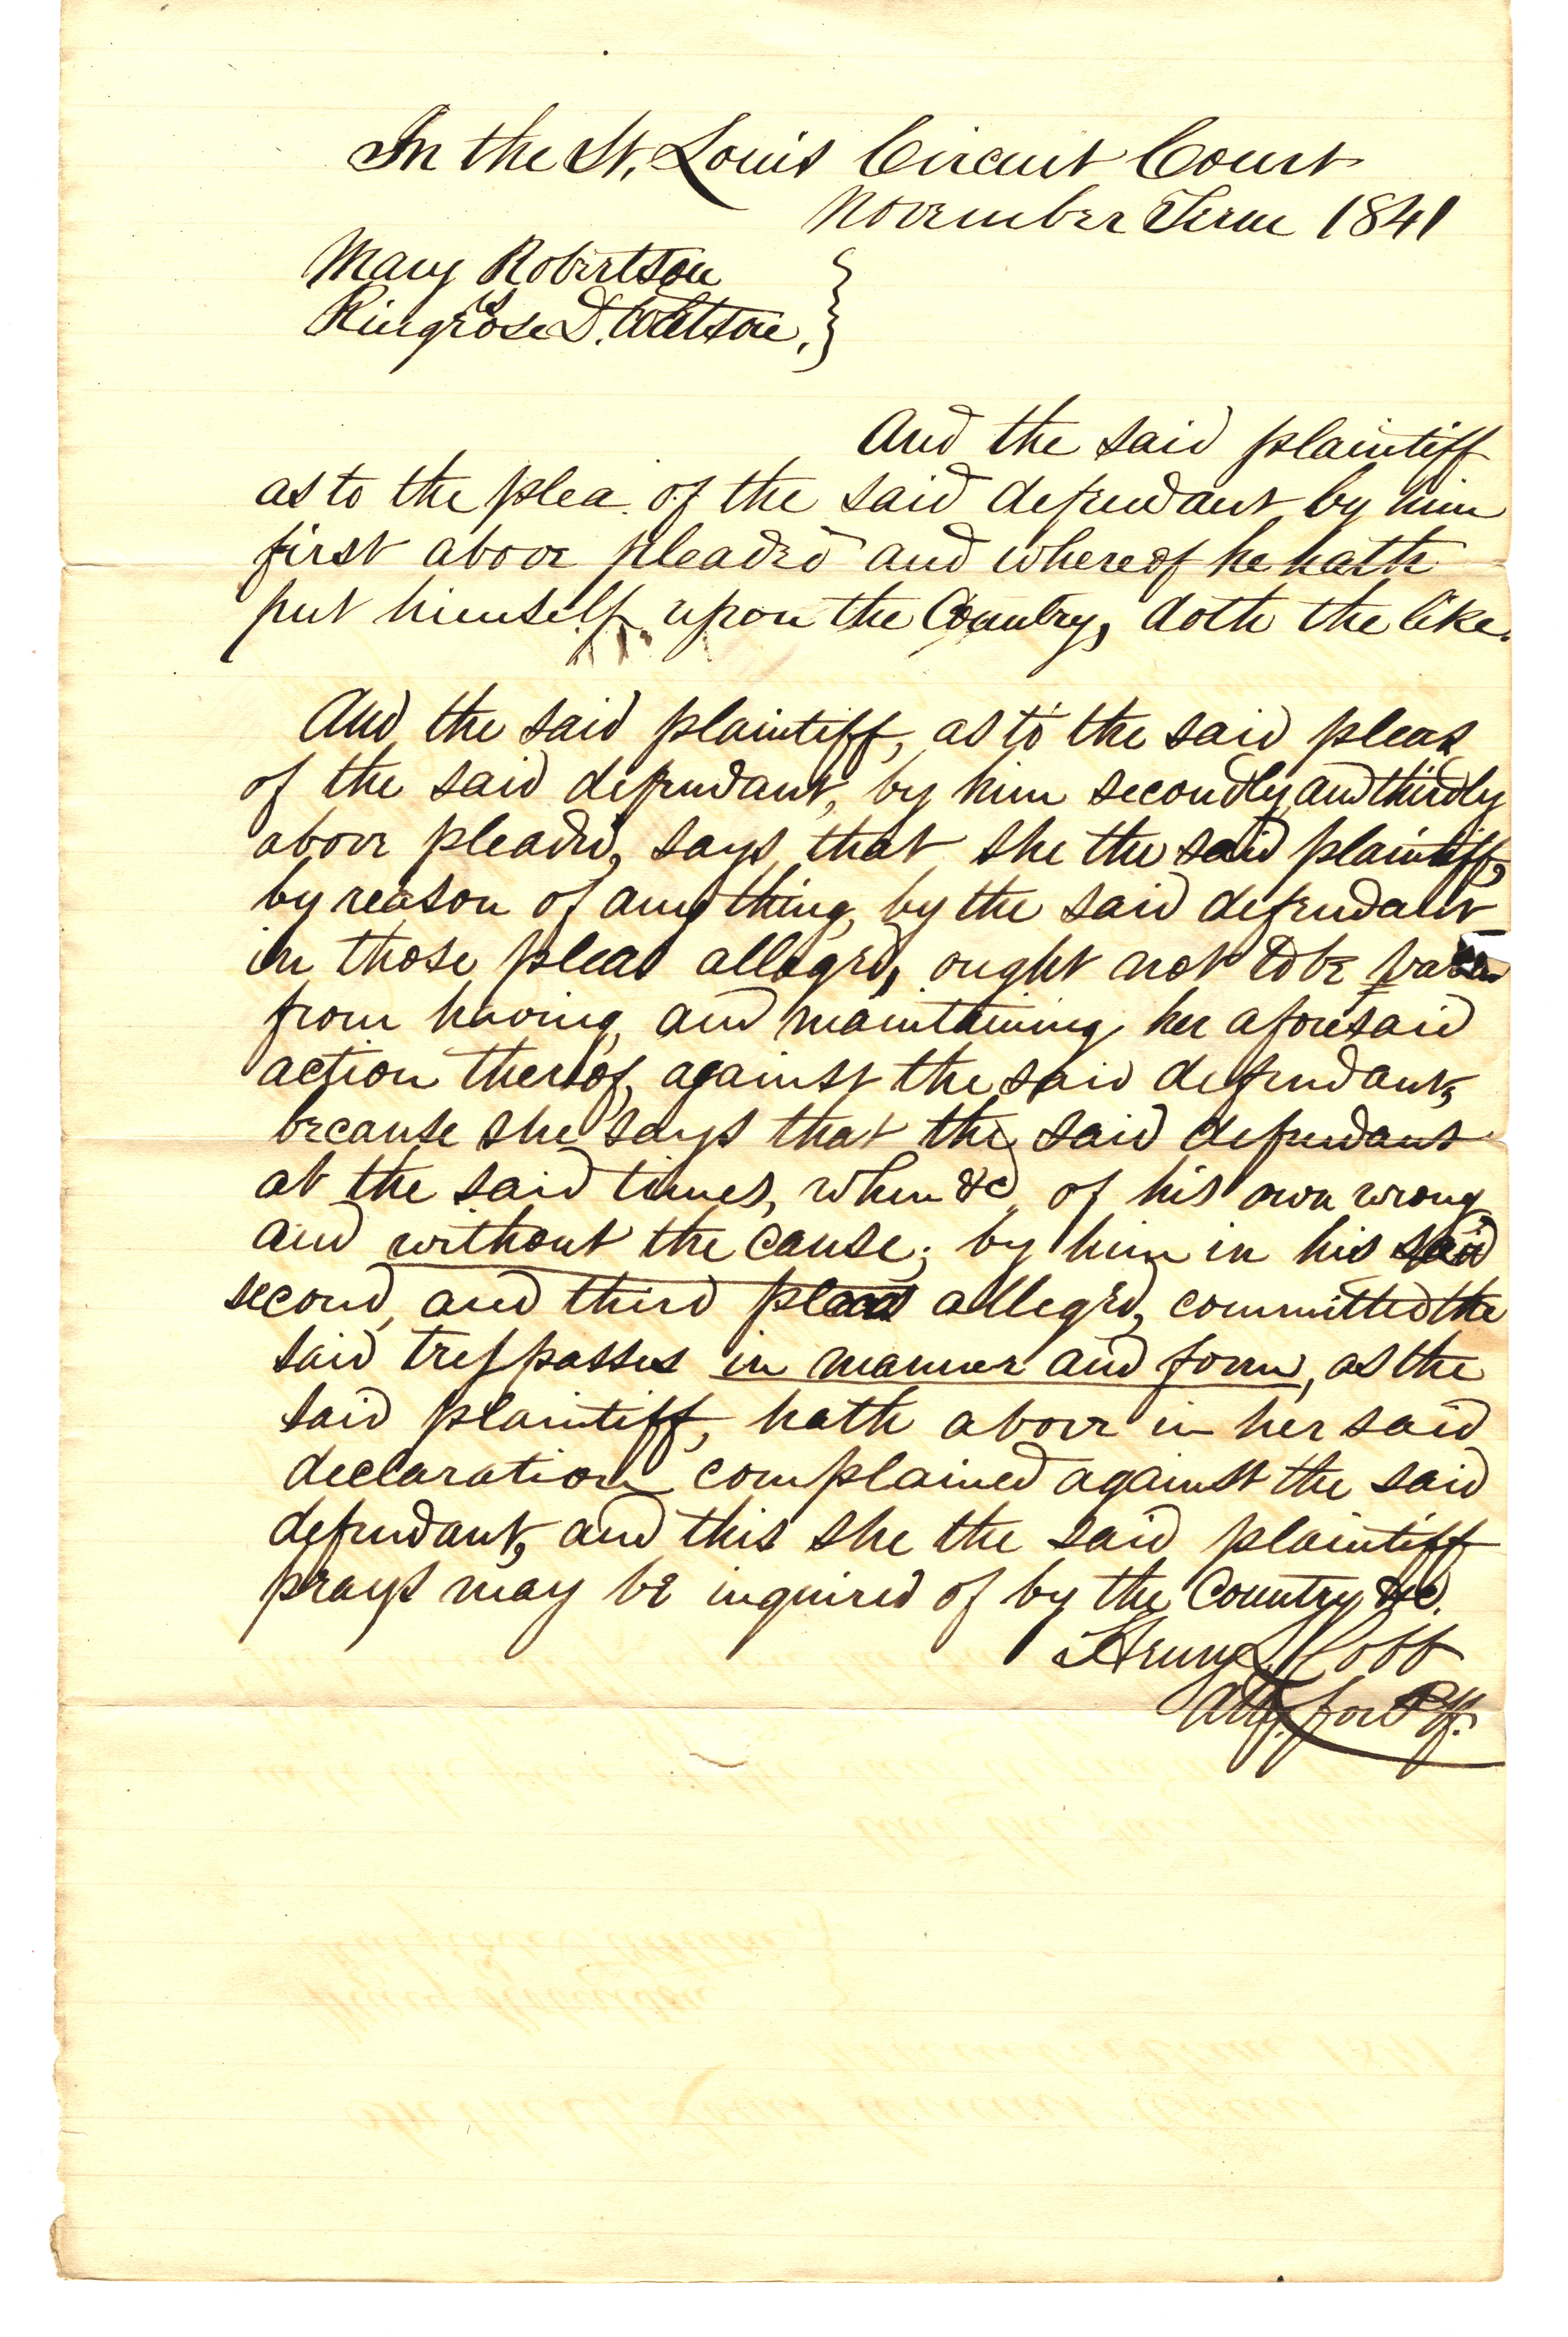 In the St. Louis Circuit Court
November Term 1841
Mary Robertson
vs
Ringrose D. Watson.
And the said plaintiff
as to the plea of the said defendant by him
first above pleaded and whereof he hath
put himself upon the Country, doth the like.
And the said plaintiff, as to the said pleas
of the said defendant, by him secondly and thirdly
above pleaded, says that she the said plaintiff,
by reason of any thing, by the said defendant
in those pleas alleged, ought not to be
from having and maintaining her aforesaid
action thereof, against the said defendant,
because she says that the said defendant
at the said times, when &c of his own wrong
and without the cause, by him in his said
second, and third pleas alleged, committed the
said trespasses in manner and form, as the
said plaintiff, hath above in her said
declaration complained against the said
defendant, and this she the said plaintiff
prays may be inquired of by the Country &c.
Cobb
Atty. for Plff.